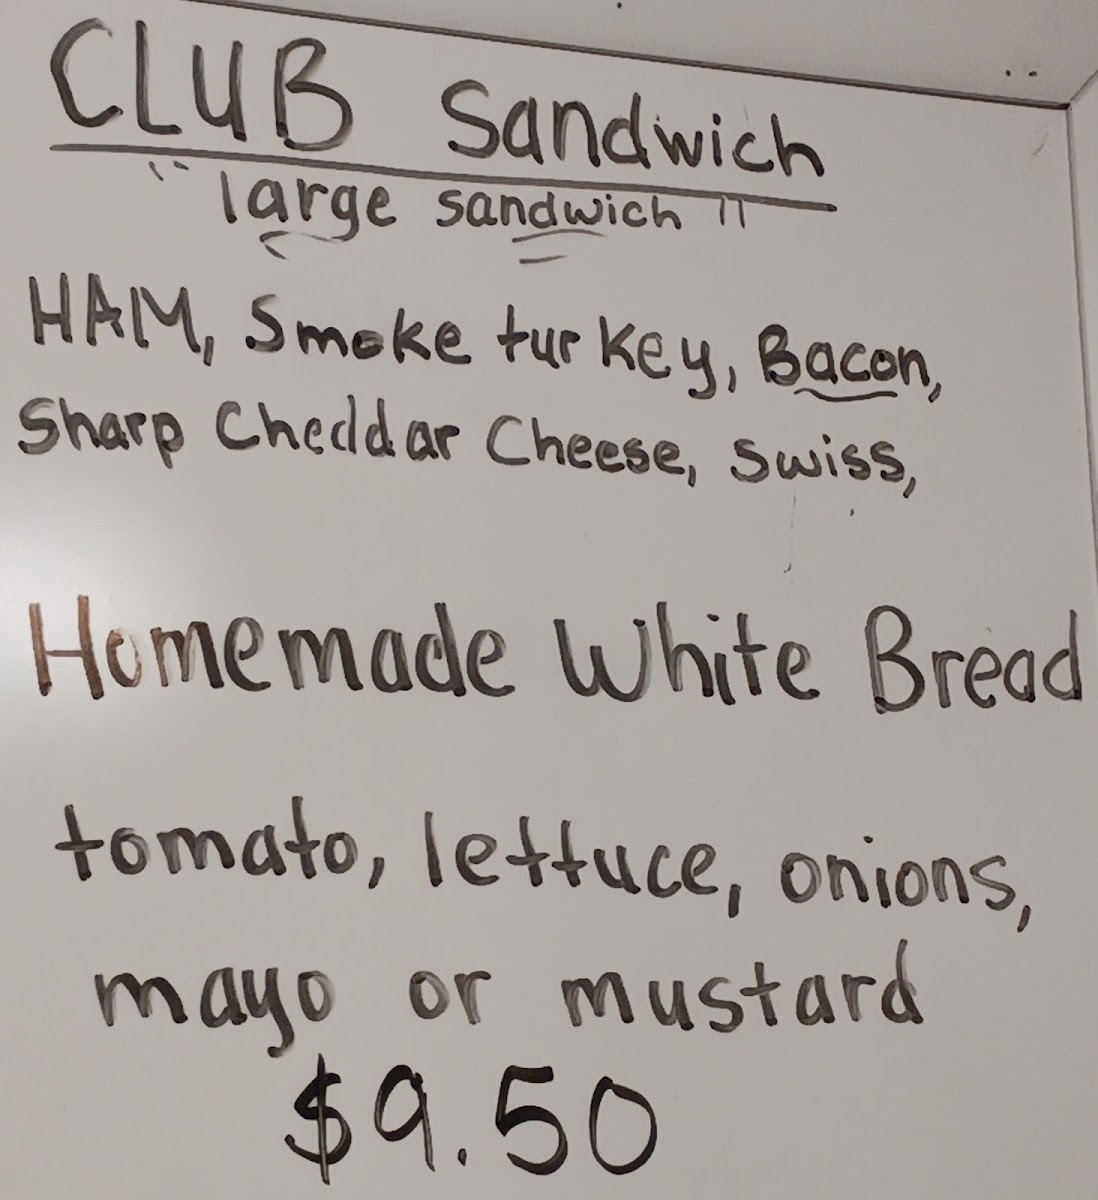 CLUB Sandwich
"large sandwich"
HAM, Smoke turkey, Bacon,
Sharp Cheddar Cheese, Swiss,
Homemade White Bread
tomato, lettuce, onions,
mayo or mustard
$9.50